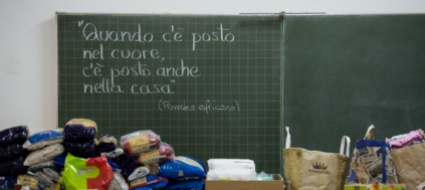 "Quando c'è posto
nel cuore,
c'è posto anche
nella casa"
(Proverbio africano)